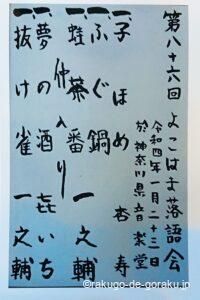 第八十六回 よこはま落語会
令和四年一月二十三日
於 神奈川県音楽堂
一、子ほめ 杏寿
一、ふぐ鍋
一、蛙茶番 一之輔
仲入り
一、夢の酒 㐂いち
一、抜け雀 一之輔
©rakugo-de-goraku.jp